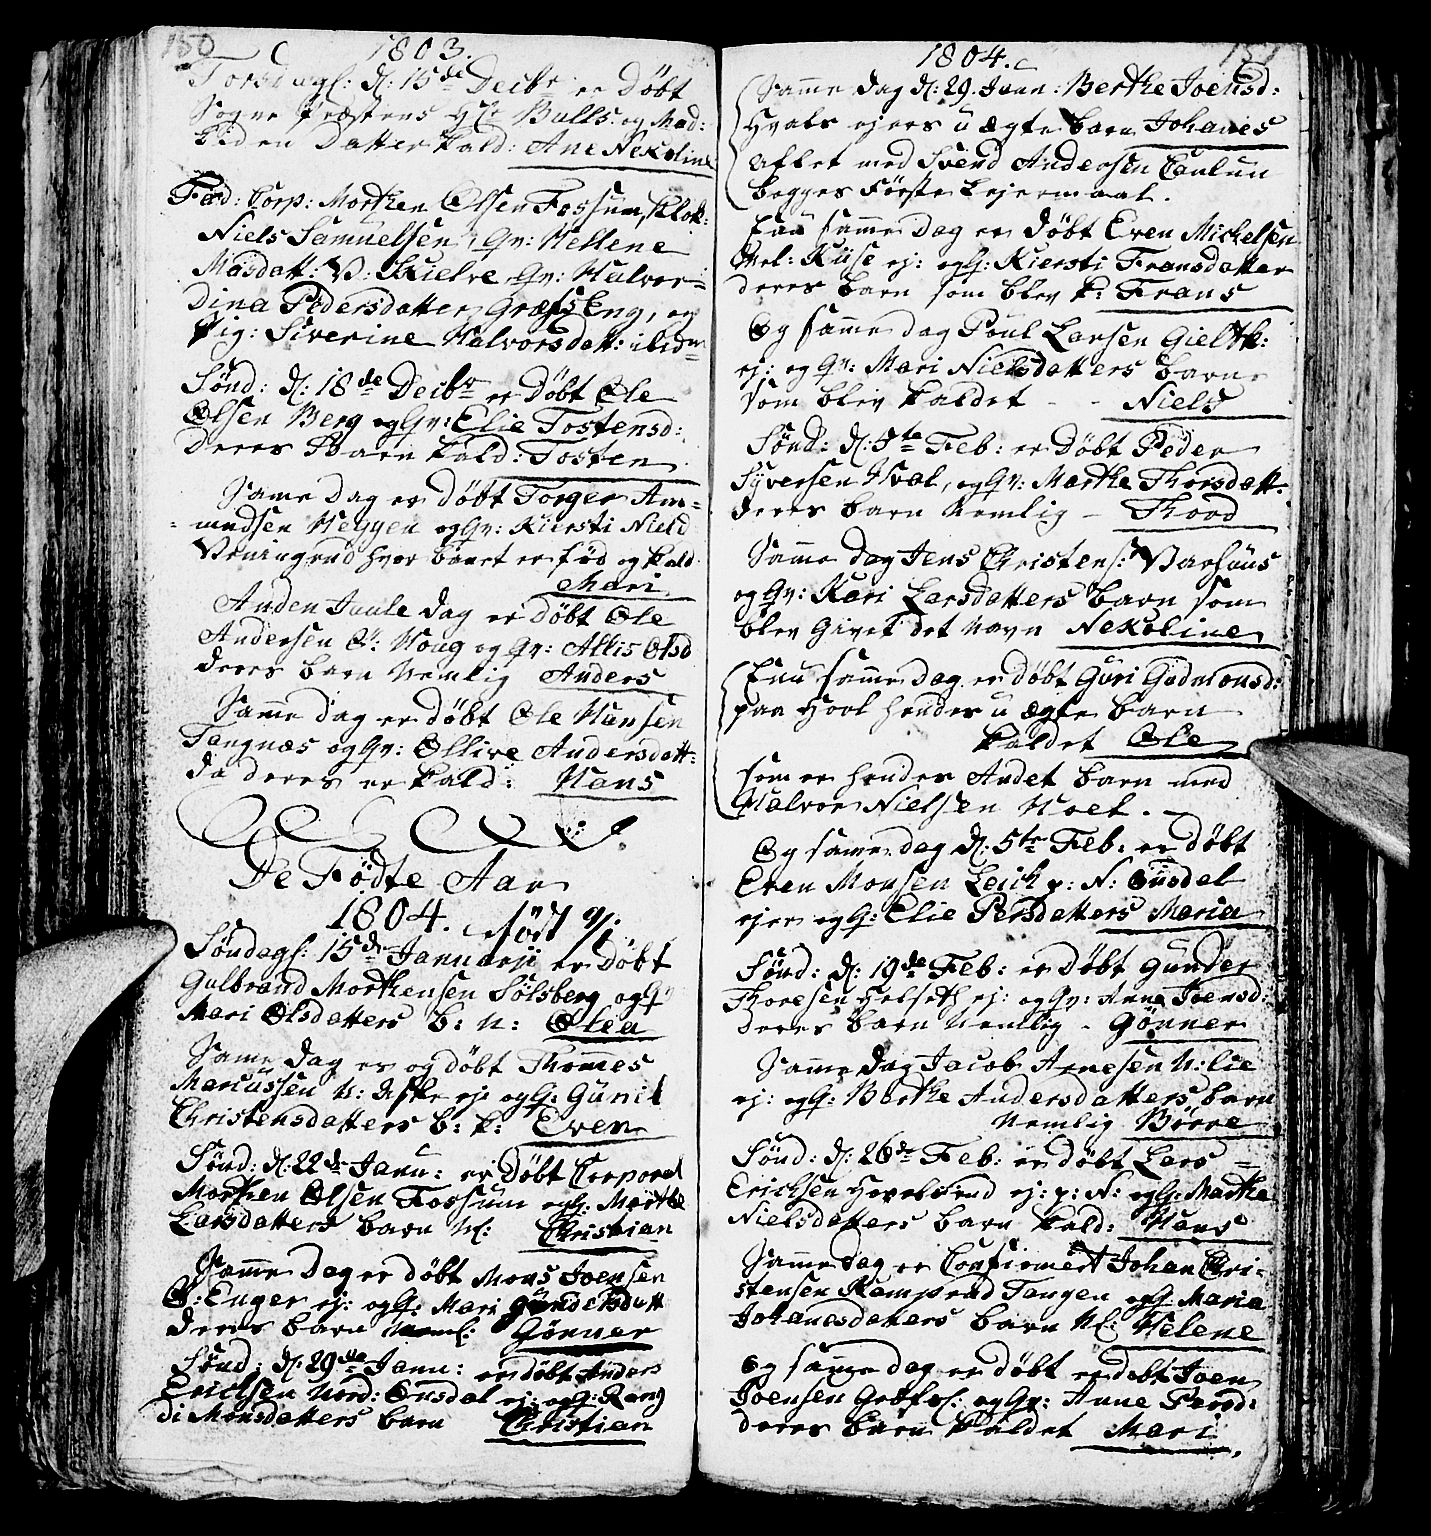 150
1803.
Torsdags: d: 15de Decbr er döbt
Sogne Præstens Hr Bulls og Mad:
liden Datter kald: Ane Nekoline
Fad: Corp: Morthen Olsen Fossum, Klok:
Niels Samuelsen, Qv: Hellene
Masdatt: V: Skielve Qv: Halvor=
Dina Pedersdatter Græfs Eng, og
Pig: Siverine Halvorsdatt: ibidm
Sönd: d: 18de Decbr er Döbt Ole
Olsen Berg og Qv: Elie Tostensd:
deres Barn kald: Tosten
Same Dag er döbt Torger Am=
=undsen Heggen og Qv: Kiersti Nield
hvor barnet er föd og kald
Mari
Anden Juule dag er döbt Ole
Andersen Haug og Qv: Allis Olsd
deres barn Nemlig Anders
Samme dag er döbt Ole Hansen
Tangnæs og Qv: Ollive Andersdatt:
da deres er kald: Hans
De Födte Aar
1804.
Söndags: 15de Januarji er döbt
Gulbrand Morthensen Sölsberg og Qv
Mari Olsdatters b: N: Olea
Same dag er og döbt Thommes
Marcussen N: Aske ej: og Q: Gunil
Christensdatters b: k: Even
Sönd: d: 22de Janu: er döbt Corporal
Morthen Olsen Fossum og Q: Marthe
Larsdatters barn Nl: Christian
Samme Dag er döbt Mons Joensen
Ö: Enger ej: og Q: Mari Gundersdatt
deres barn Neml: Gönner
Sönd: d: 29de Janu: er döbt Anders
Erichsen Nord: Onsdal ej: og Q: Rang
di Monsdatters barn Christian
1804.
151
Samme dag d: 29. Janu: Berthe Joensd:
Hvals ejers u ægte barn Johanes
aflet med Svend Andersen
begges Förste Lejermaal.
Enu samme Dag er döbt Even Michelsen
Vel: Kiise ej: og Q: Kiersti Fransdatter
deres barn som blev k: Frans
Og samme dag Poul Larsen Gielth:
ej: og Qv: Mari Nielsdatters barn
som blev kaldet - - Niels
Sönd: d: 5te Feb: er döbt Peder
Syversen Hval, og Qv: Marthe Thorsdatt.
deres barn Nemlig - Thord
Samme dag Jens Christens: Varhuus
og Qv: Kari Larsdatters barn som
blev Givet det Navn Nekoline
Enu samme Dag er döbt Guri Gudmonsd:
paa Hool hendes u ægte barn
kaldet Ole
som er hendes Andet barn med
Halvor Nielsen Hoel.
Og samme dag d: 5te Feb: er döbt
Even Monsen Leich p: N: Onsdal
ejer og Q: Elie Persdatters Maria
Sönd: d: 19de Feb: er döbt Gunder
Thoresen Helseth ej: og Qv: Anne Joensd:
deres barn Nemlig - Gönner
Samme dag Jacob Arnesen N: Lie
ej: og Q: Berthe Andersdatters barn
Nemlig Börre
Sönd: d: 26de Feb: er döbt Lars
Erichsen ej: p: N: og Q: Marthe
Nielsdatters barn kald: Hans
Samme dag er Confirmert Johan Chri=
stensen Kamprud Tangen og Q: Maria
Johanesdatters barn Nl: Helene
Og samme dag er döbt er döbt Joen
Joensen og Qv: Anne Persd:
deres barn kaldet Mari